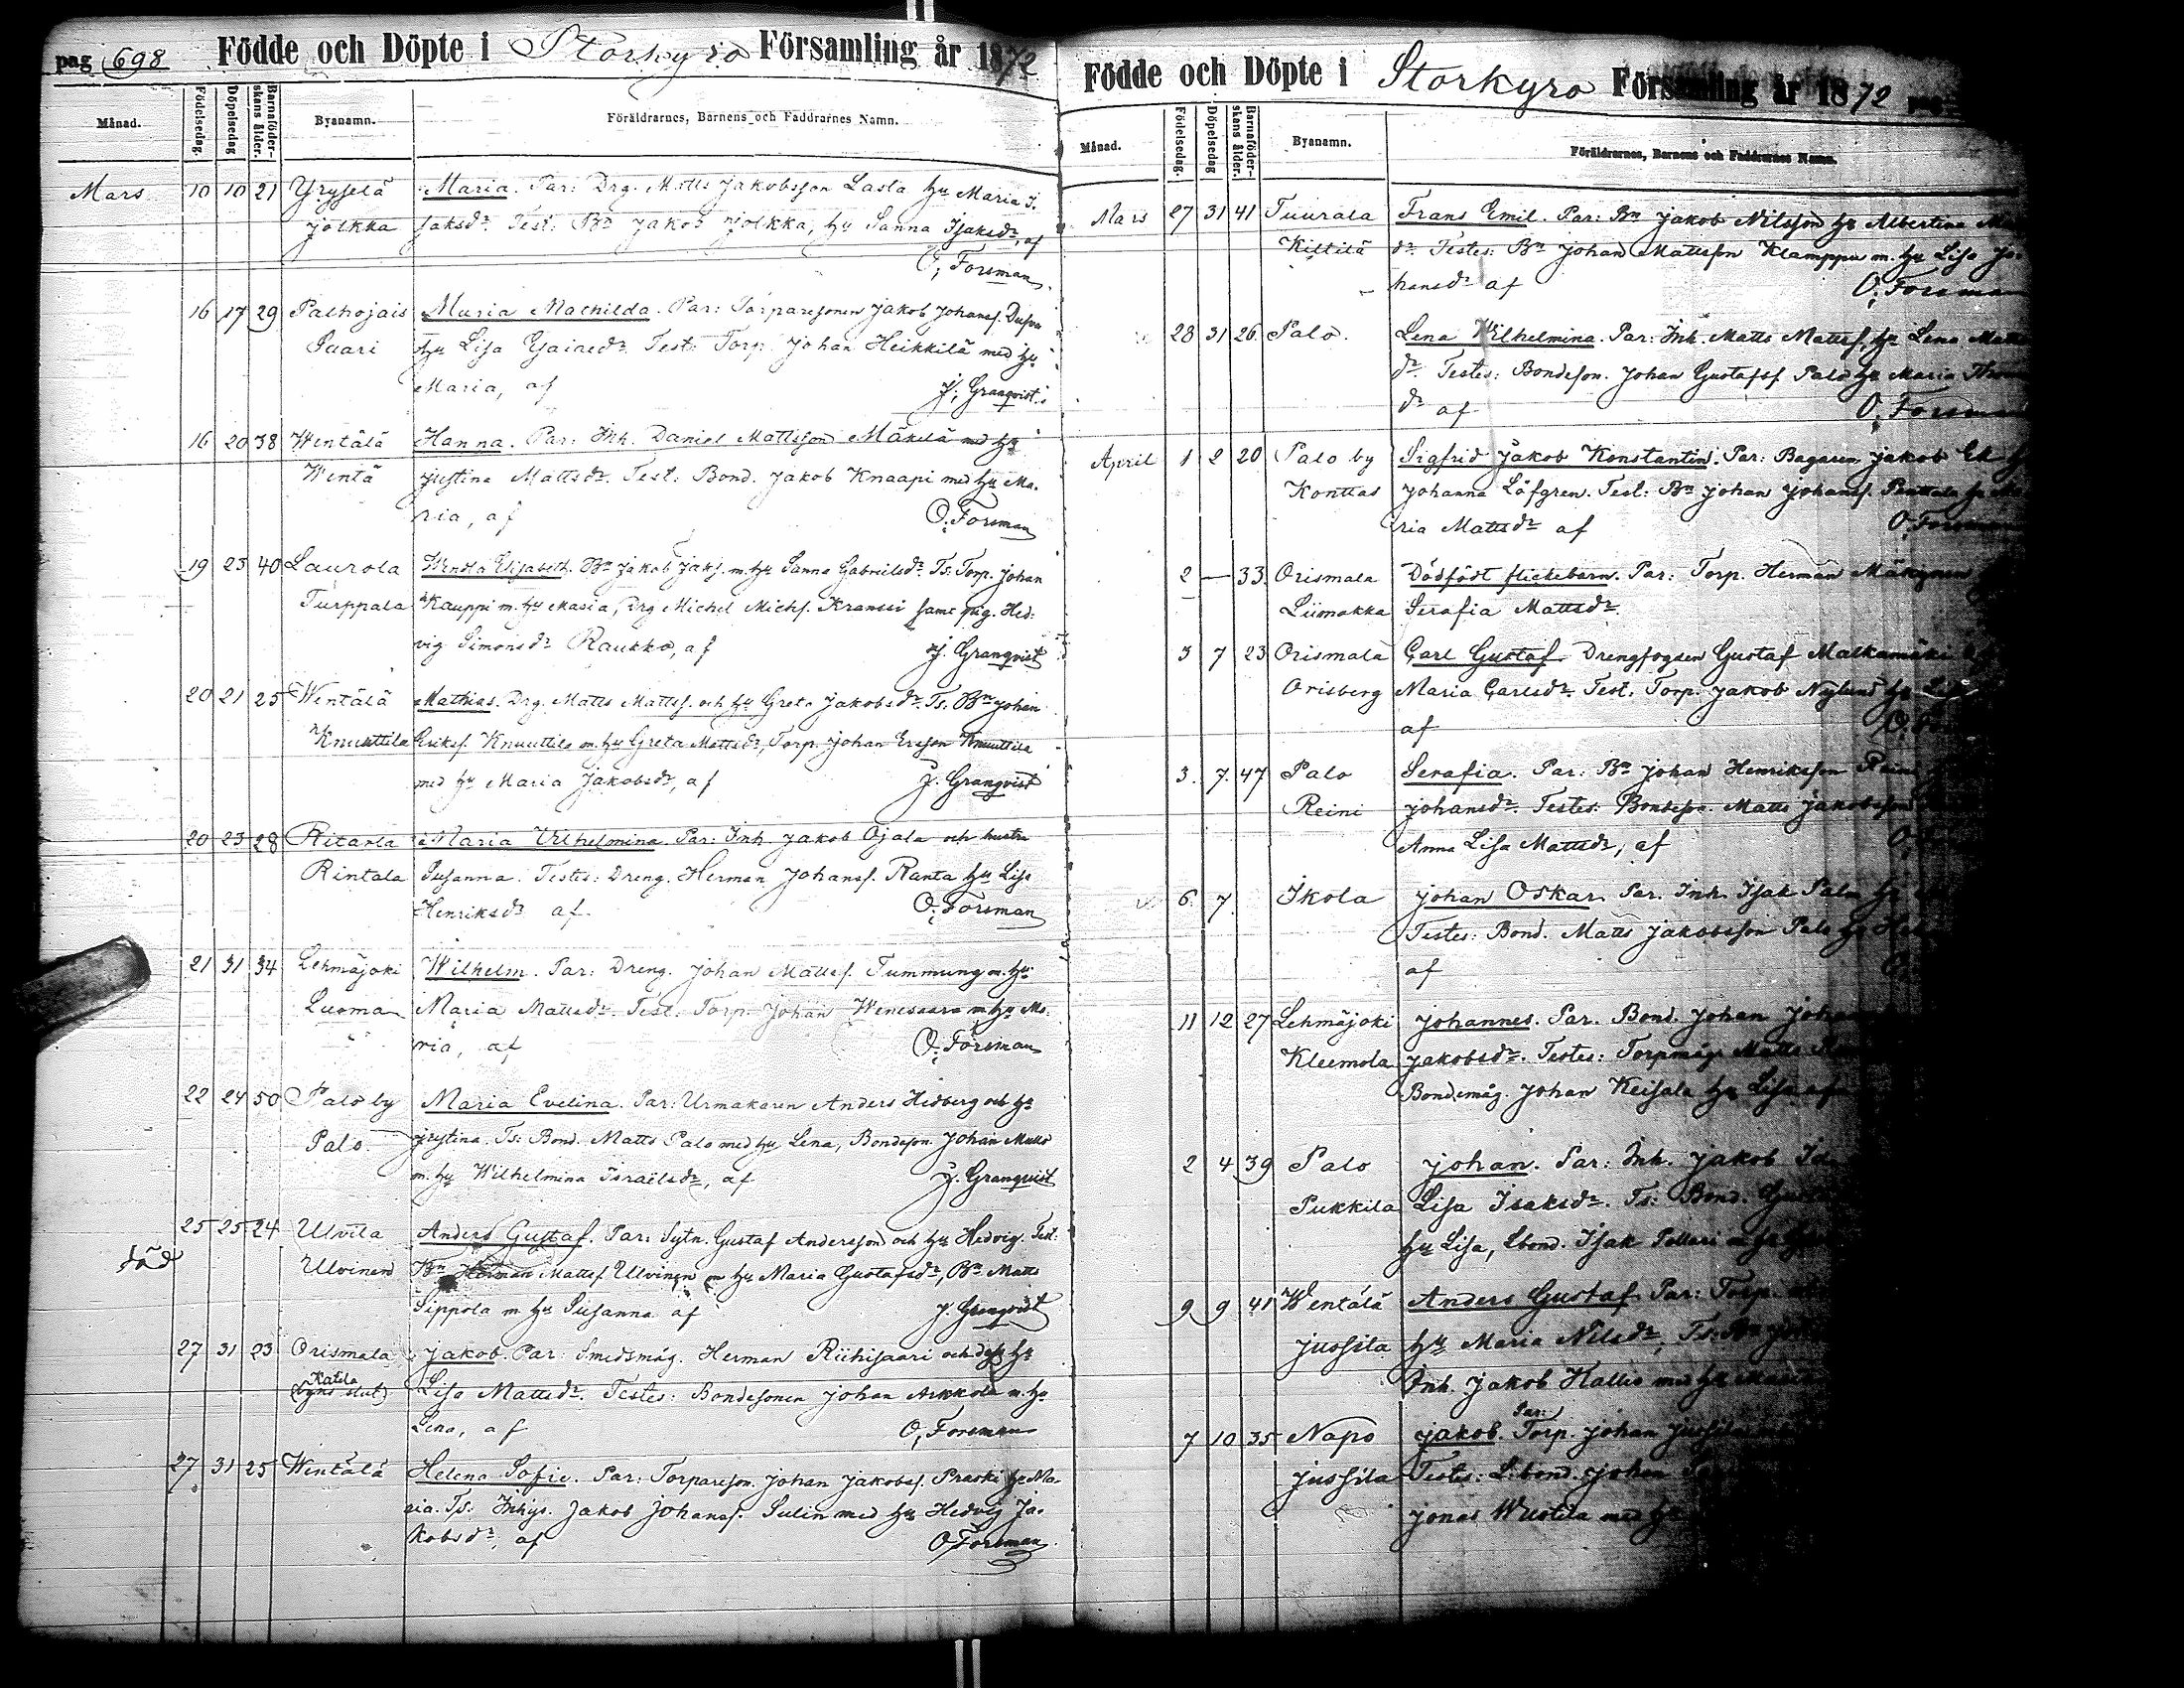 pag 698 Födde och Döpte i Storkyro Församling år 1872
Månad. Födelsedag. Döpelsedag Barnaföderskans ålder. Byanamn. Föräldrarnes, Barnens och Faddrarnes Namn.
Mars 10 10 21 Yryselä Maria. Par: Drg. Matts Jakobsson Lasla hu Maria I.
Jolkka saksdr. Test: Bn Jakob Jolkka, hu Sanna Isaksdr, af
O. Forsman
16 17 29 Palhojais Maria Mathilda. Par: Torparesonen Jakob Johanss.
Saari hu Lisa Esaiaedr. Test: Torp. Johan Heikkilä med hu
Maria, af J. Granqvist
16 20 38 Wentälä Hanna. Par: Inh. Daniel Mattsson Mäkelä med hu
Wentä Justina Mattsdr. Test: Bond. Jakob Knaapi med hu Ma-
ria, af O. Forsman
19 23 40 Laurola Wendla Elisabeth. Bn Jakob Jaks. m. hu Sanna Gabrielsdr. Ts: Torp. Johan
Turppala Kauppi m. hu Maria, Drg Michel Michs. Kranssi samt pig. Hed-
vig Simonsdr Raukko, af J. Granqvist
20 21 25 Wentälä Mathias. Drg. Matts Mattss. och hu Greta Jakobsdr. Ts. Bn Johan
Knuuttila Erikss. Knuuttila m. hu Greta Mattsdr, Torp. Johan Ersson Knuuttila
med hu Maria Jakobsdr, af J. Granqvist
20 23 28 Ritaala Maria Wilhelmina. Par: Inh. Jakob Ojala och hustru
Rintala Susanna. Testes: Dreng. Herman Johanss. Ranta hu Lisa
Henriksdr af. O. Forsman
21 31 34 Lehmäjoki Wilhelm. Par: Dreng. Johan Mattss. Tummung m. hu
Luoma Maria Mattsdr. Test. Torp. Johan Wenesaara m hu Ma-
ria, af O. Forsman
22 24 50 Palo by Maria Evelina. Par: Urmakaren Anders Hedberg och hu
Palo Justina. Ts: Bond. Matts Palo med hu Lena, Bondeson. Johan Matts
m. hu Wilhelmina Israëlsdr, af J. Granqvist
25 25 24 Ulvila Anders Gustaf. Par: Sytn. Gustaf Andersson och hu Hedvig. Test:
död Ulvinen Bn Herman Mattss. Ulvinen m hu Maria Gustafsdr, Bn Matts
Sippola m hu Susanna af J. Granqvist
27 31 23 Orismala Jakob. Par: Smedsmåg. Herman Riihisaari och dess hu
Katila
(byns slut) Lisa Mattsdr. Testes: Bondesonen Johan Arkkola m. hu
Lena, af O. Forsman
27 31 25 Wentälä Helena Sofie. Par: Torpareson. Johan Jakobss. Praski hu Ma-
ria. Ts. Inhys. Jakob Johanss. Sulin med hu Hedvig Ja-
kobsdr, af O. Forsman
Födde och Döpte i Storkyro Församling år 1872 pag
Månad. Födelsedag. Döpelsedag Barnaföderskans ålder. Byanamn. Föräldrarnes, Barnens och Faddrarnes Namn.
Mars 27 31 41 Tuurala Frans Emil. Par: Bn Jakob Nilsson hu Albertina
Kiltilä dr. Testes: Bn Johan Mattsson Klamppu m. hu Lisa Jo-
hansdr af O. Forsman
28 31 26 Palo. Lena Wilhelmina. Par: Inh. Matts Mattss. hu Lena Matts
dr. Testes: Bondeson. Johan Gustafss Palo hu Maria
dr af O. Forsman
April 1 2 20 Palo by Sigfrid Jakob Konstantin. Par: Bagaren Jakob Ek
Konttas Johanna Löfgren. Test: Bn Johan Johanss. Penttala hu Ma
ria Mattsdr af O. Forsman
2 — 33 Orismala Dödfödt flickebarn. Par: Torp. Herman Mäkynen
Liimakka Serafia Mattsdr.
3 7 23 Orismala Carl Gustaf. Drengfogden Gustaf Malkamäki
Orisberg Maria Carlsdr. Test. Torp. Jakob Nylund hu Lisa
af O.
3. 7. 47 Palo Serafia. Par: Bn Johan Henriksson Reini
Reini Johansdr. Testes: Bondeson. Matts Jakobsson
Anna Lisa Mattsdr, af O.
6. 7. Ikola Johan Oskar. Par. Inh. Isak Palo hu
Testes: Bond. Matts Jakobsson Palo hu
af
11 12 27 Lehmäjoki Johannes. Par. Bond. Johan
Kleemola Jakobsdr. Testes: Torpmåg. Matts
Bondemåg. Johan Keisala hu Lisa af
2 4 39 Palo Johan. Par: Inh. Jakob
Pukkila Lisa Isaksdr. Ts: Bond.
hu Lisa, Lbond. Isak Pollari
9 9 41 Wentälä Anders Gustaf. Par: Torp.
Jussila hu Maria Nilsdr, Ts: Bn
Inh. Jakob Kallio med hu
Par:
7 10 35 Napo Jakob. Torp. Johan Jussila
Jussila Testes: L: bond. Johan
Jonas Wuotila med hu